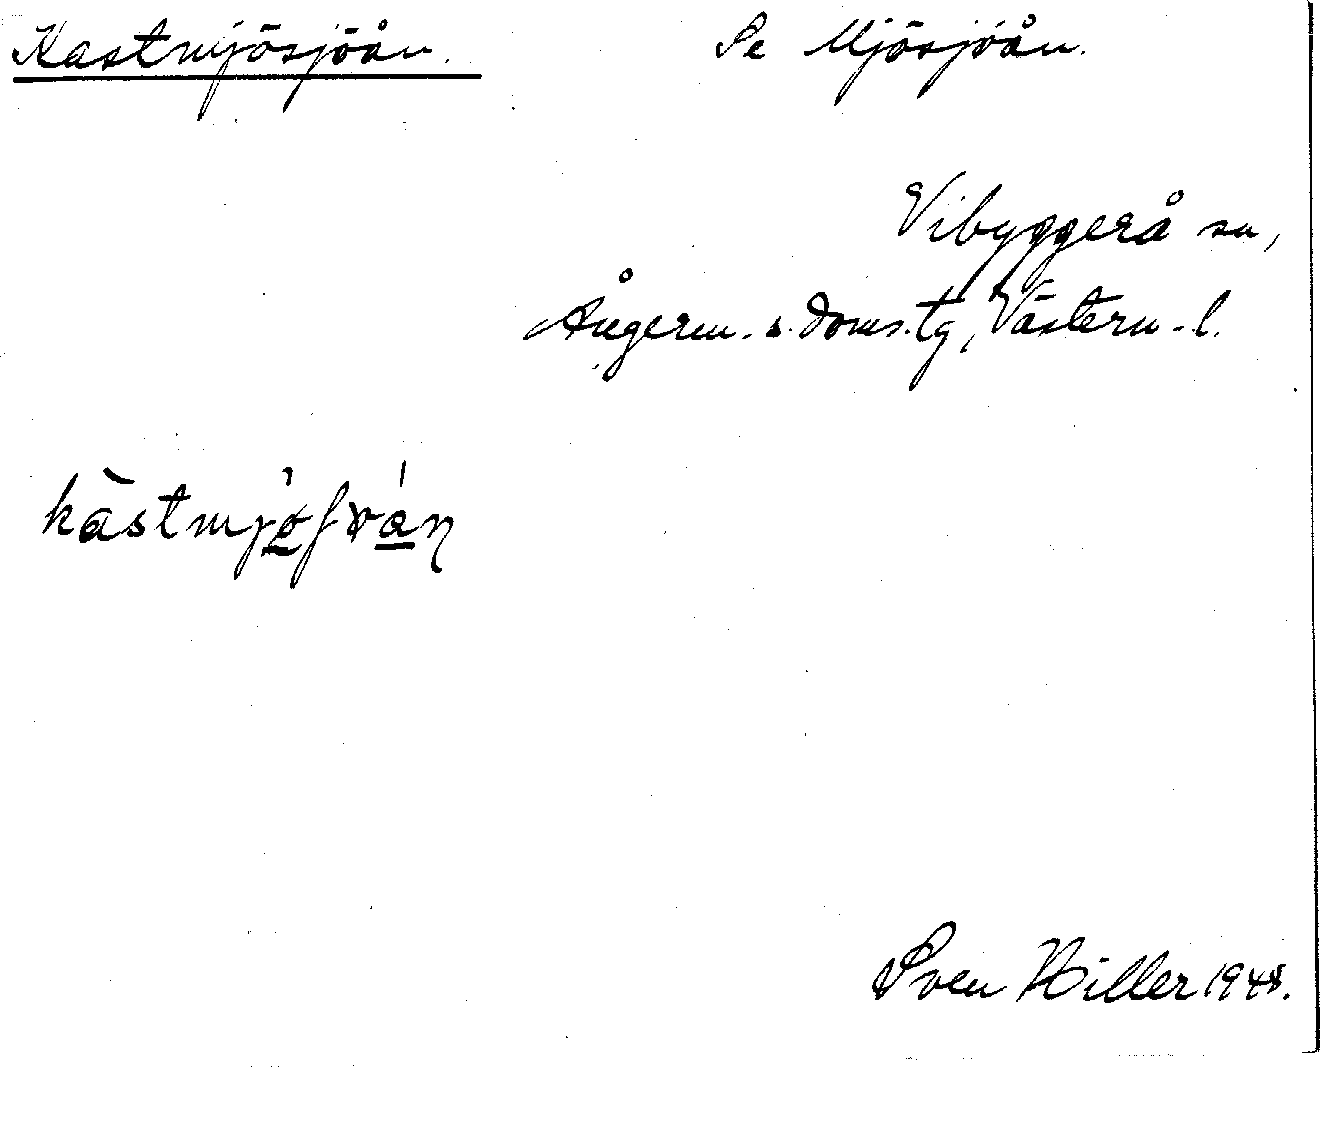 Kastmjösjöån. Se Mjösjöån.
Vibyggerå sn,
Ångerm. s. doms.tg, Västern.l.
Sven Hiller 1948.